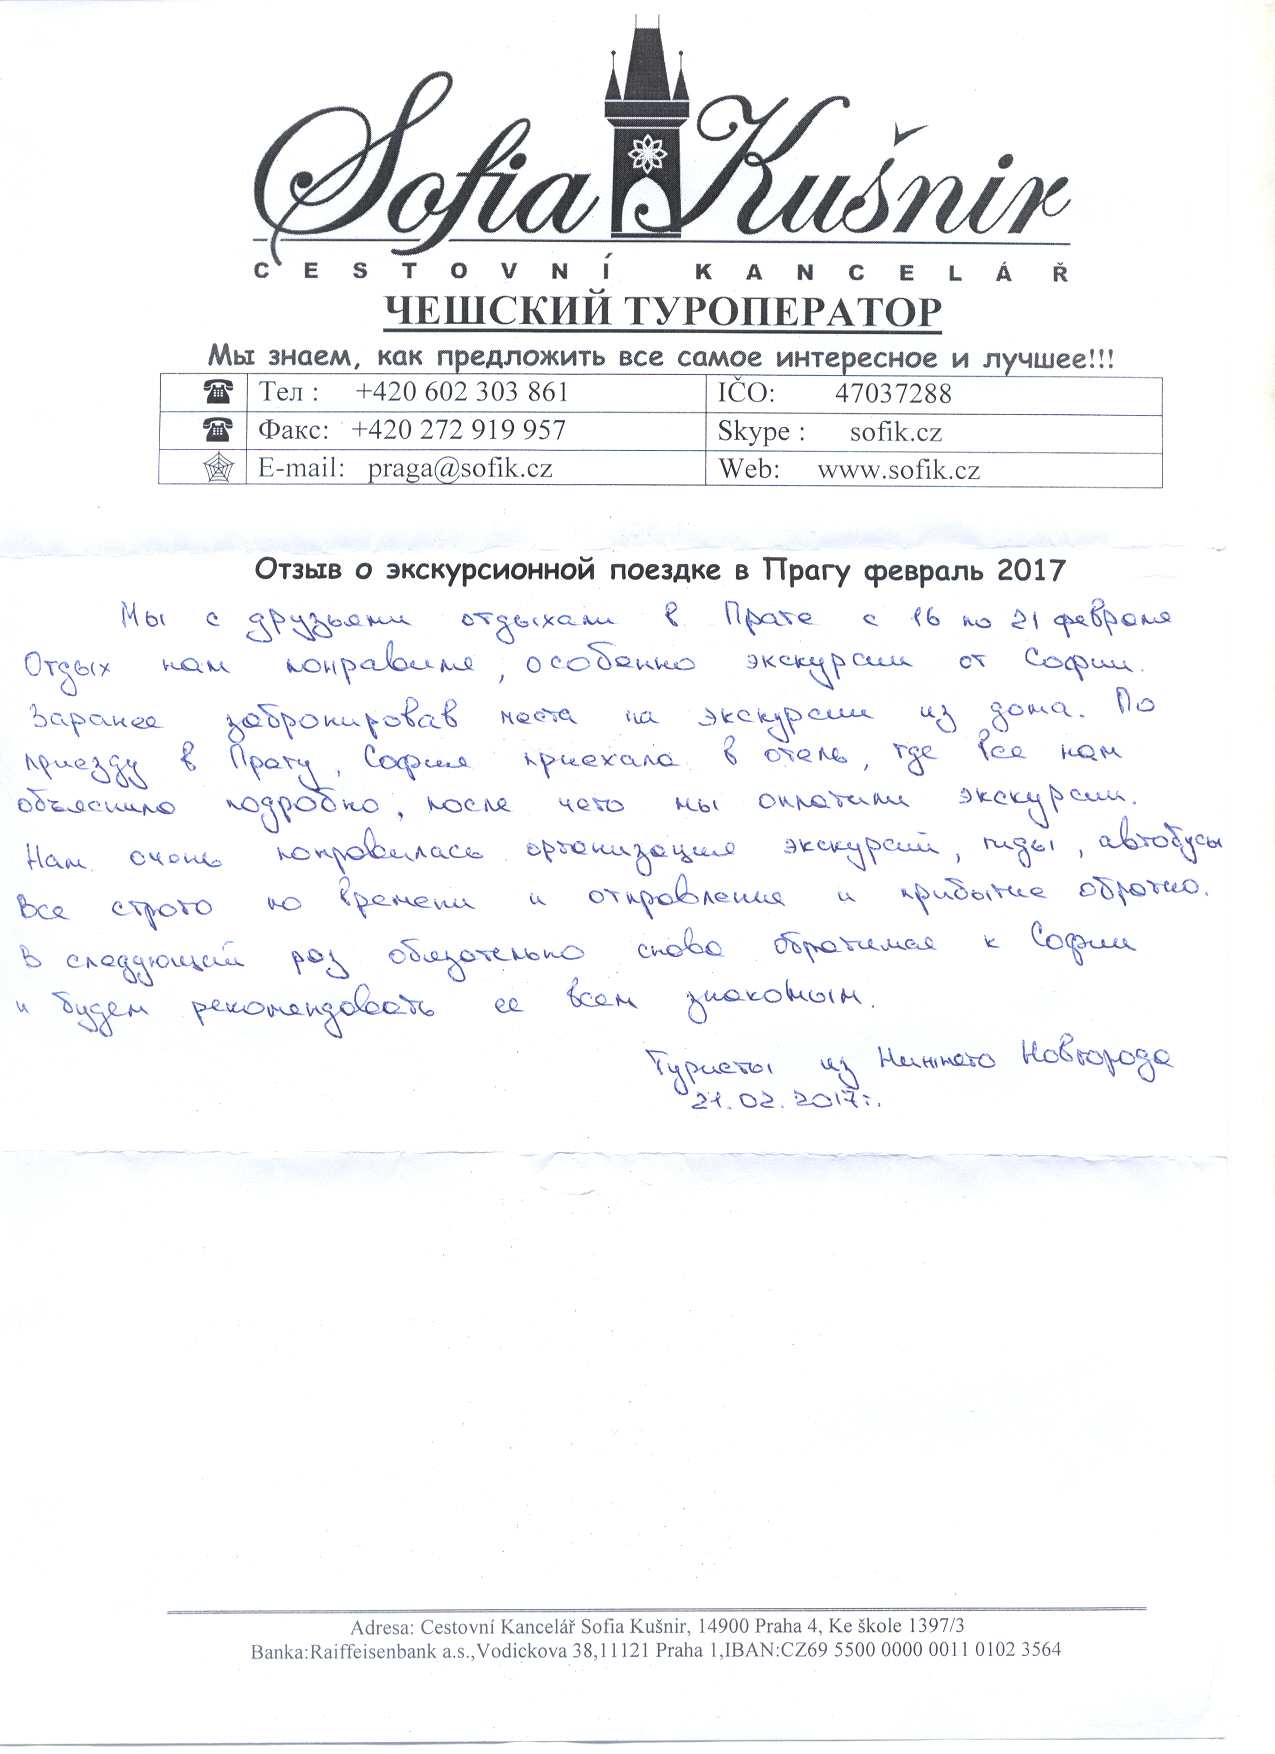 Sofia Kušnir
CESTOVNÍ KANCELÁŘ
ЧЕШСКИЙ ТУРОПЕРАТОР
Мы знаем, как предложить все самое интересное и лучшее!!!
Тел : +420 602 303 861 IČO: 47037288
Факс: +420 272 919 957 Skype : sofik.cz
E-mail: praga@sofik.cz Web: www.sofik.cz
Отзыв о экскурсионной поездке в Прагу февраль 2017
Мы с друзьями отдыхали в Праге с 16 по 21 февраля
Отдых нам понравился, особенно экскурсии от Софии.
Заранее забронировав места на экскурсии из дома. По
приезду в Прагу, София приехала в отель, где все нам
объяснила подробно, после чего мы оплатили экскурсии.
Нам очень понравилась организация экскурсий, гиды, автобусы
Все строго по времени и отправление и прибытие обратно.
В следующий раз обязательно снова обратимся к Софии
и будем рекомендовать ее всем знакомым.
Туристы из Нижнего Новгорода
21.02.2017г.
Adresa: Cestovní Kancelář Sofia Kušnir, 14900 Praha 4, Ke škole 1397/3
Banka:Raiffeisenbank a.s.,Vodickova 38,11121 Praha 1,IBAN:CZ69 5500 0000 0011 0102 3564